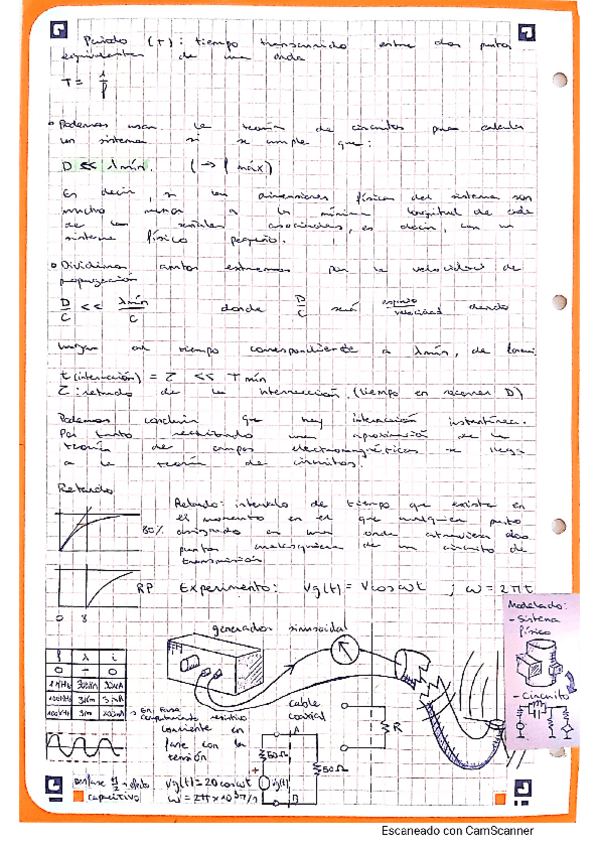 Periodo (T): tiempo transcurrido entre dos puntos
equivalentes de una onda
T = 1/f
Podemos usar la teoría de circuitos para calcular
un sistema si se cumple que:
D << λmín. (→ f máx)
Es decir, si las dimensiones físicas del sistema son
mucho menor a la mínima longitud de onda
de las señales asociadas, es decir, con un
sistema físico pequeño.
Dividimos ambos extremos por la velocidad de
propagación
D/C << λmín/C donde D/C será espacio/velocidad dando
lugar al tiempo correspondiente a λmín, de
t(interacción) = Z << T mín
Z: retardo de la interacción (tiempo en recorrer D)
Podemos concluir que hay interacción instantánea.
Por tanto una aproximación de la
teoría de campos electromagnéticos se llega
a la teoría de circuitos.
Retardo
Retardo: intervalo de tiempo que existe en
el momento en el que cualquier punto
80% en una onda atraviesa dos
puntos cualesquiera de un circuito de
transmisión
RP
Experimento: Vg(t) = V cos ωt ; ω = 2πf
Modelado:
- Sistema
físico
- Circuito
generador sinusoidal
f λ i
0 - 0
En fase
comportamiento resistivo
corriente en
fase con la
tensión
cable
coaxial
A
R
50Ω
50Ω
+
Vg(t)
B
desfase π/2 → efecto
capacitivo
Vg(t) = 20 cos ωt
Escaneado con CamScanner